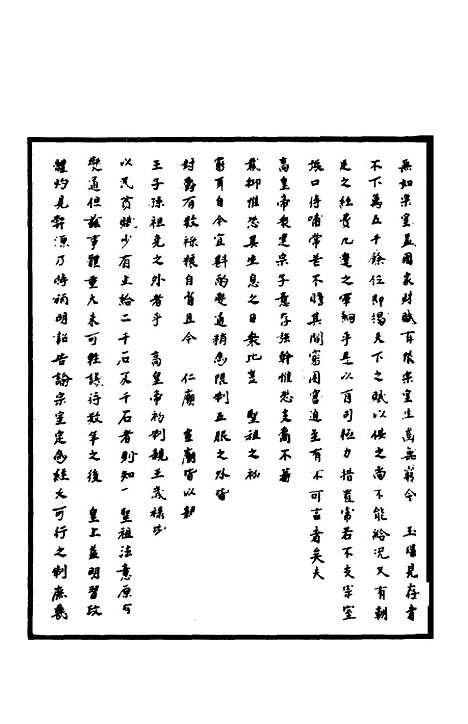 無如宗室蓋國家財賦有限宗室生齒無窮今 玉牒見存者
不下萬五千餘位即竭天下之賦以供之尚不能給況又有朝
廷之經費九邊之軍餉乎是以有司極力措置常若不支宗室
張口待哺常苦不贍其間窮困窘迫至有不可言者矣夫
高皇帝眾建宗子意存強幹惟恐支裔不蕃
裁抑惟恐其生息之日衆也豈 聖祖之初
窮有自今宜斟酌變通稍為限制五服之外皆
封爵有數祿糧自省且今 仁廟 宣廟皆以親
王子孫祖免之外者乎 高皇帝初制親王歲祿
以民貧賦少有止給二千石及千石者則知 聖祖法意原可
變通但茲事體重大未可輕議待數年之後 皇上益明習政
體灼見弊源乃特禍明詔告諭宗室定為經久可行之制庶幾